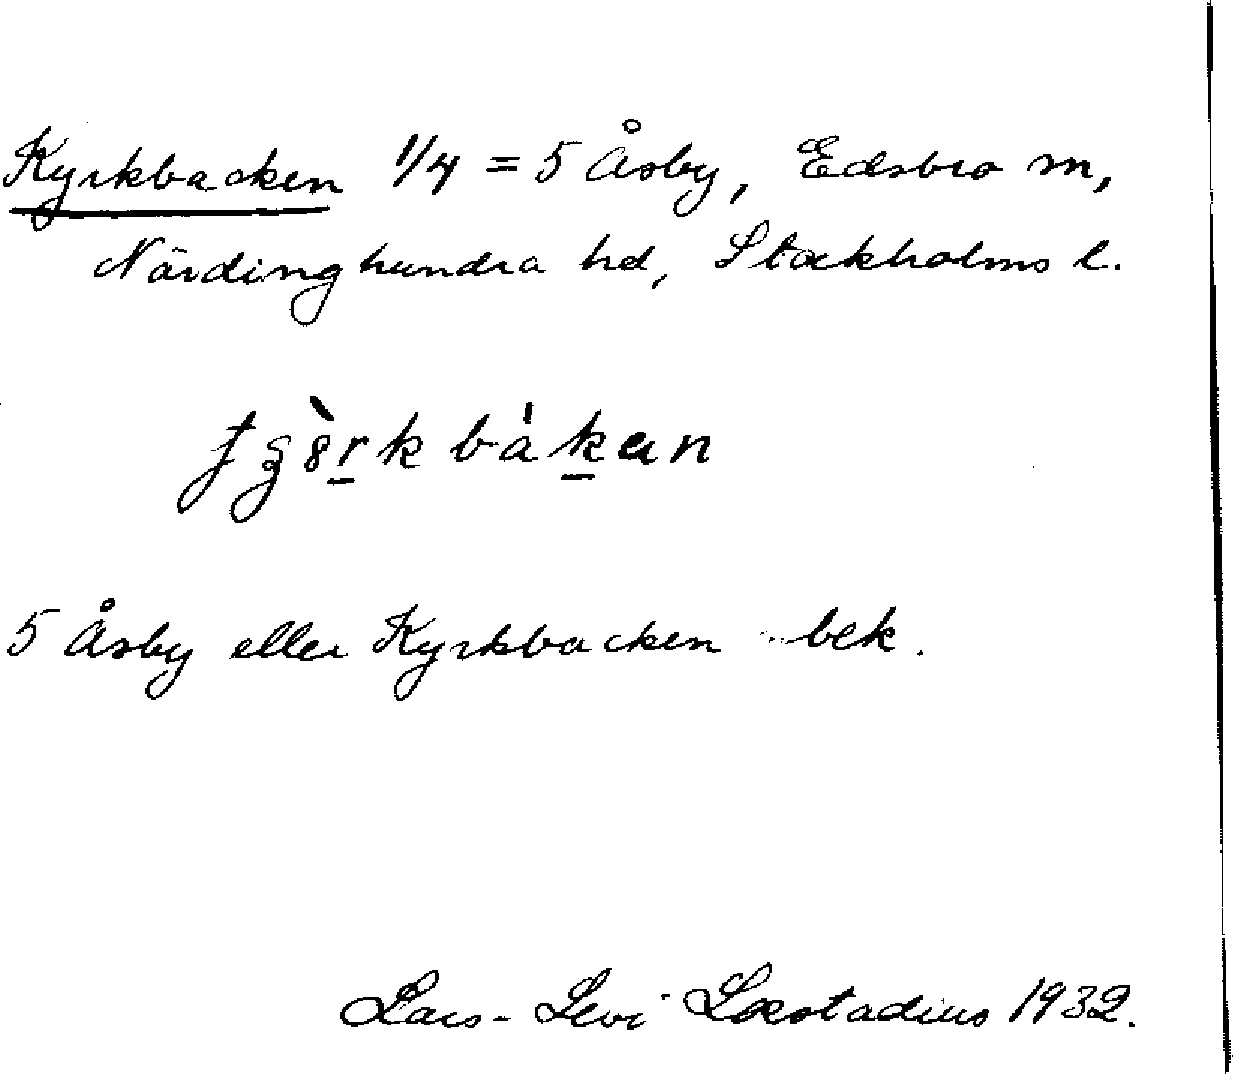 Kyrkbacken 1/4 = 5 Åsby, Edsbro sn,
Närdinghundra hd, Stockholms l.
5 Åsby eller Kyrkbacken bek.
Lars-Levi Læstadius 1932.